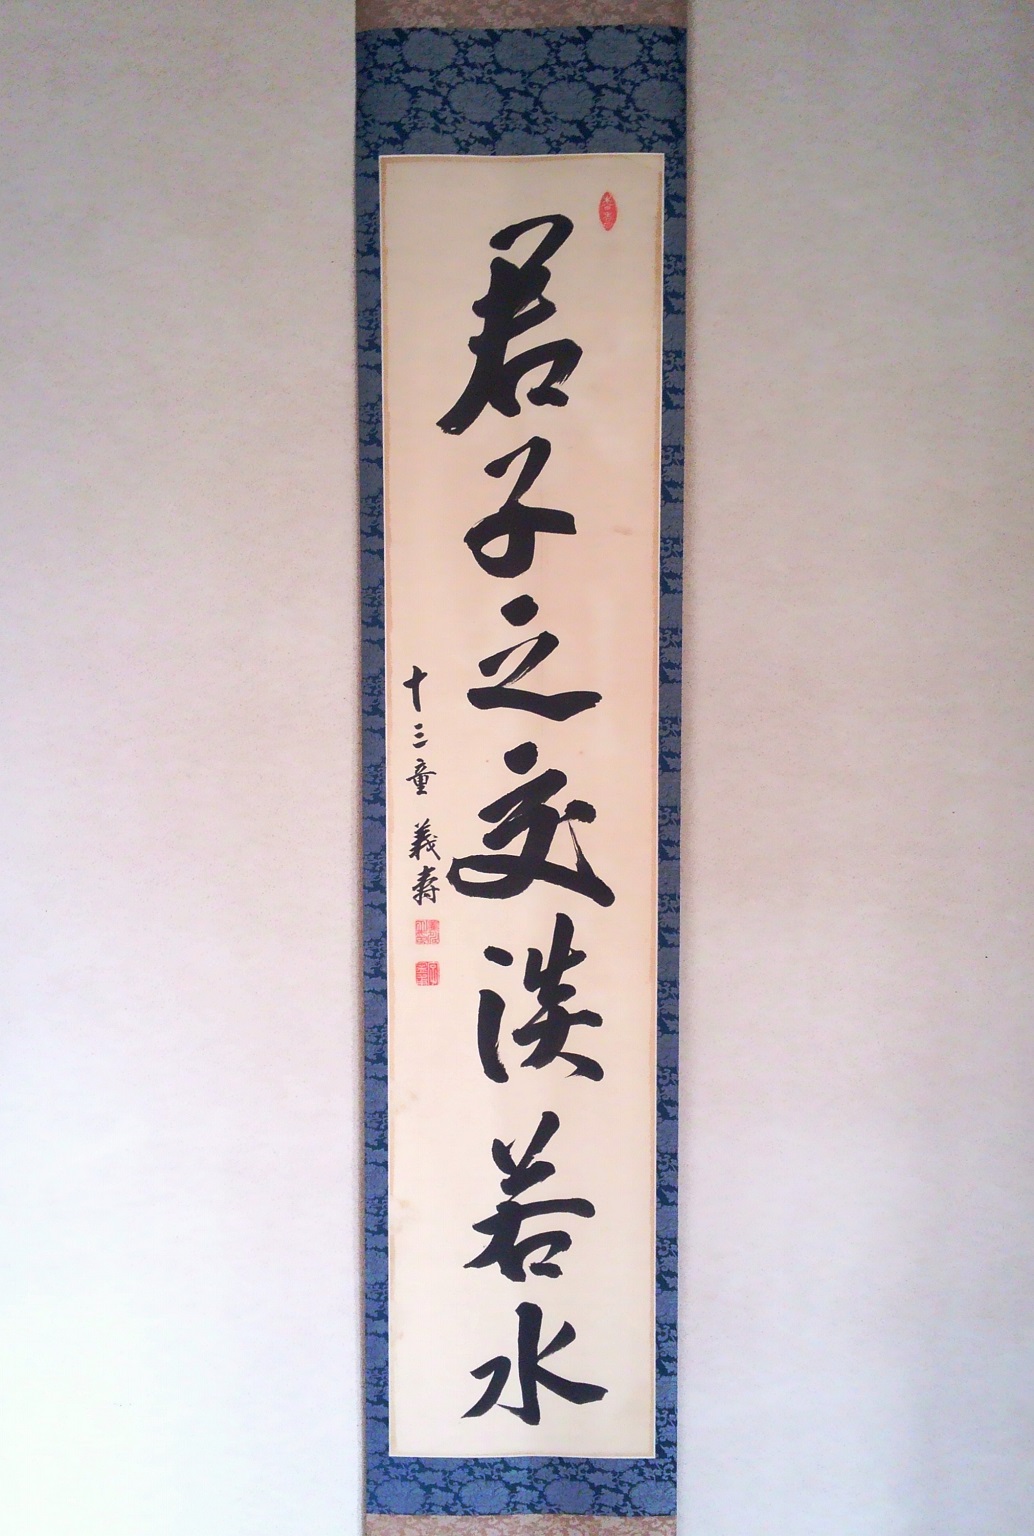 君子之交淡若水
十三童 義壽